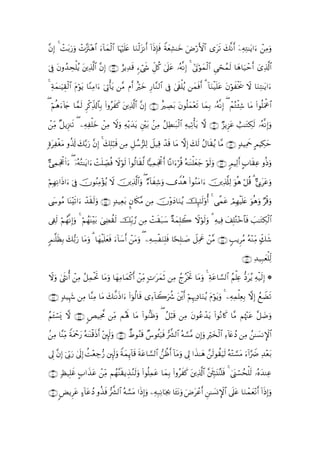 وَمِنْ ءَايَٰتِهِۦٓ أَنَّكَ تَرَى ٱلْأَرْضَ خَٰشِعَةً فَإِذَآ أَنزَلْنَا عَلَيْهَا ٱلْمَآءَ ٱهْتَزَّتْ وَرَبَتْ ۚ إِنَّ
ٱلَّذِىٓ أَحْيَاهَا لَمُحْىِ ٱلْمَوْتَىٰٓ ۚ إِنَّهُۥ عَلَىٰ كُلِّ شَىْءٍ قَدِيرٌ ۝ إِنَّ ٱلَّذِينَ يُلْحِدُونَ فِىٓ
ءَايَٰتِنَا لَا يَخْفَوْنَ عَلَيْنَآ ۗ أَفَمَن يُلْقَىٰ فِى ٱلنَّارِ خَيْرٌ أَم مَّن يَأْتِىٓ ءَامِنًا يَوْمَ ٱلْقِيَٰمَةِ ۚ
ٱعْمَلُوا۟ مَا شِئْتُمْ ۖ إِنَّهُۥ بِمَا تَعْمَلُونَ بَصِيرٌ ۝ إِنَّ ٱلَّذِينَ كَفَرُوا۟ بِٱلذِّكْرِ لَمَّا جَآءَهُمْ ۖ
وَإِنَّهُۥ لَكِتَٰبٌ عَزِيزٌ ۝ لَّا يَأْتِيهِ ٱلْبَٰطِلُ مِنۢ بَيْنِ يَدَيْهِ وَلَا مِنْ خَلْفِهِۦ ۖ تَنزِيلٌ مِّنْ
حَكِيمٍ حَمِيدٍ ۝ مَّا يُقَالُ لَكَ إِلَّا مَا قَدْ قِيلَ لِلرُّسُلِ مِن قَبْلِكَ ۚ إِنَّ رَبَّكَ لَذُو مَغْفِرَةٍ
وَذُو عِقَابٍ أَلِيمٍ ۝ وَلَوْ جَعَلْنَٰهُ قُرْءَانًا أَعْجَمِيًّا لَّقَالُوا۟ لَوْلَا فُصِّلَتْ ءَايَٰتُهُۥٓ ۖ ءَا۬عْجَمِىٌّ
وَعَرَبِىٌّ ۗ قُلْ هُوَ لِلَّذِينَ ءَامَنُوا۟ هُدًى وَشِفَآءٌ ۖ وَٱلَّذِينَ لَا يُؤْمِنُونَ فِىٓ ءَاذَانِهِمْ
وَقْرٌ وَهُوَ عَلَيْهِمْ عَمًى ۚ أُو۟لَٰٓئِكَ يُنَادَوْنَ مِن مَّكَانٍۭ بَعِيدٍ ۝ وَلَقَدْ ءَاتَيْنَا مُوسَى
ٱلْكِتَٰبَ فَٱخْتُلِفَ فِيهِ ۗ وَلَوْلَا كَلِمَةٌ سَبَقَتْ مِن رَّبِّكَ لَقُضِىَ بَيْنَهُمْ ۚ وَإِنَّهُمْ لَفِى
شَكٍّ مِّنْهُ مُرِيبٍ ۝ مَّنْ عَمِلَ صَٰلِحًا فَلِنَفْسِهِۦ ۖ وَمَنْ أَسَآءَ فَعَلَيْهَا ۗ وَمَا رَبُّكَ بِظَلَّٰمٍ
لِّلْعَبِيدِ ۝
۞ إِلَيْهِ يُرَدُّ عِلْمُ ٱلسَّاعَةِ ۚ وَمَا تَخْرُجُ مِن ثَمَرَٰتٍ مِّنْ أَكْمَامِهَا وَمَا تَحْمِلُ مِنْ أُنثَىٰ وَلَا
تَضَعُ إِلَّا بِعِلْمِهِۦ ۚ وَيَوْمَ يُنَادِيهِمْ أَيْنَ شُرَكَآءِى قَالُوٓا۟ ءَاذَنَّٰكَ مَا مِنَّا مِن شَهِيدٍ ۝
وَضَلَّ عَنْهُم مَّا كَانُوا۟ يَدْعُونَ مِن قَبْلُ ۖ وَظَنُّوا۟ مَا لَهُم مِّن مَّحِيصٍ ۝ لَّا يَسْـَٔمُ
ٱلْإِنسَٰنُ مِن دُعَآءِ ٱلْخَيْرِ وَإِن مَّسَّهُ ٱلشَّرُّ فَيَـُٔوسٌ قَنُوطٌ ۝ وَلَئِنْ أَذَقْنَٰهُ رَحْمَةً مِّنَّا مِنۢ
بَعْدِ ضَرَّآءَ مَسَّتْهُ لَيَقُولَنَّ هَٰذَا لِى وَمَآ أَظُنُّ ٱلسَّاعَةَ قَآئِمَةً وَلَئِن رُّجِعْتُ إِلَىٰ رَبِّىٓ إِنَّ لِى
عِندَهُۥ لَلْحُسْنَىٰ ۚ فَلَنُنَبِّئَنَّ ٱلَّذِينَ كَفَرُوا۟ بِمَا عَمِلُوا۟ وَلَنُذِيقَنَّهُم مِّنْ عَذَابٍ غَلِيظٍ ۝
وَإِذَآ أَنْعَمْنَا عَلَى ٱلْإِنسَٰنِ أَعْرَضَ وَنَـَٔا بِجَانِبِهِۦ وَإِذَا مَسَّهُ ٱلشَّرُّ فَذُو دُعَآءٍ عَرِيضٍ ۝